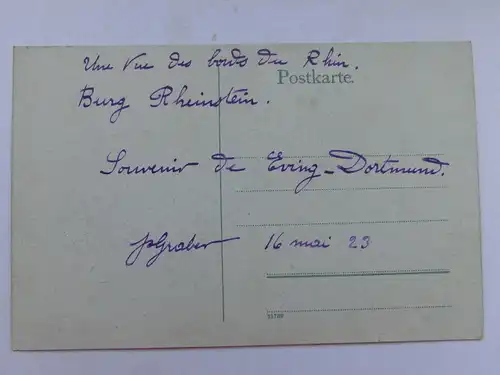 Une Vue des bords du Rhin.
Postkarte.
Burg Rheinstein.
Souvenir de Eving-Dortmund.
16 mai 23